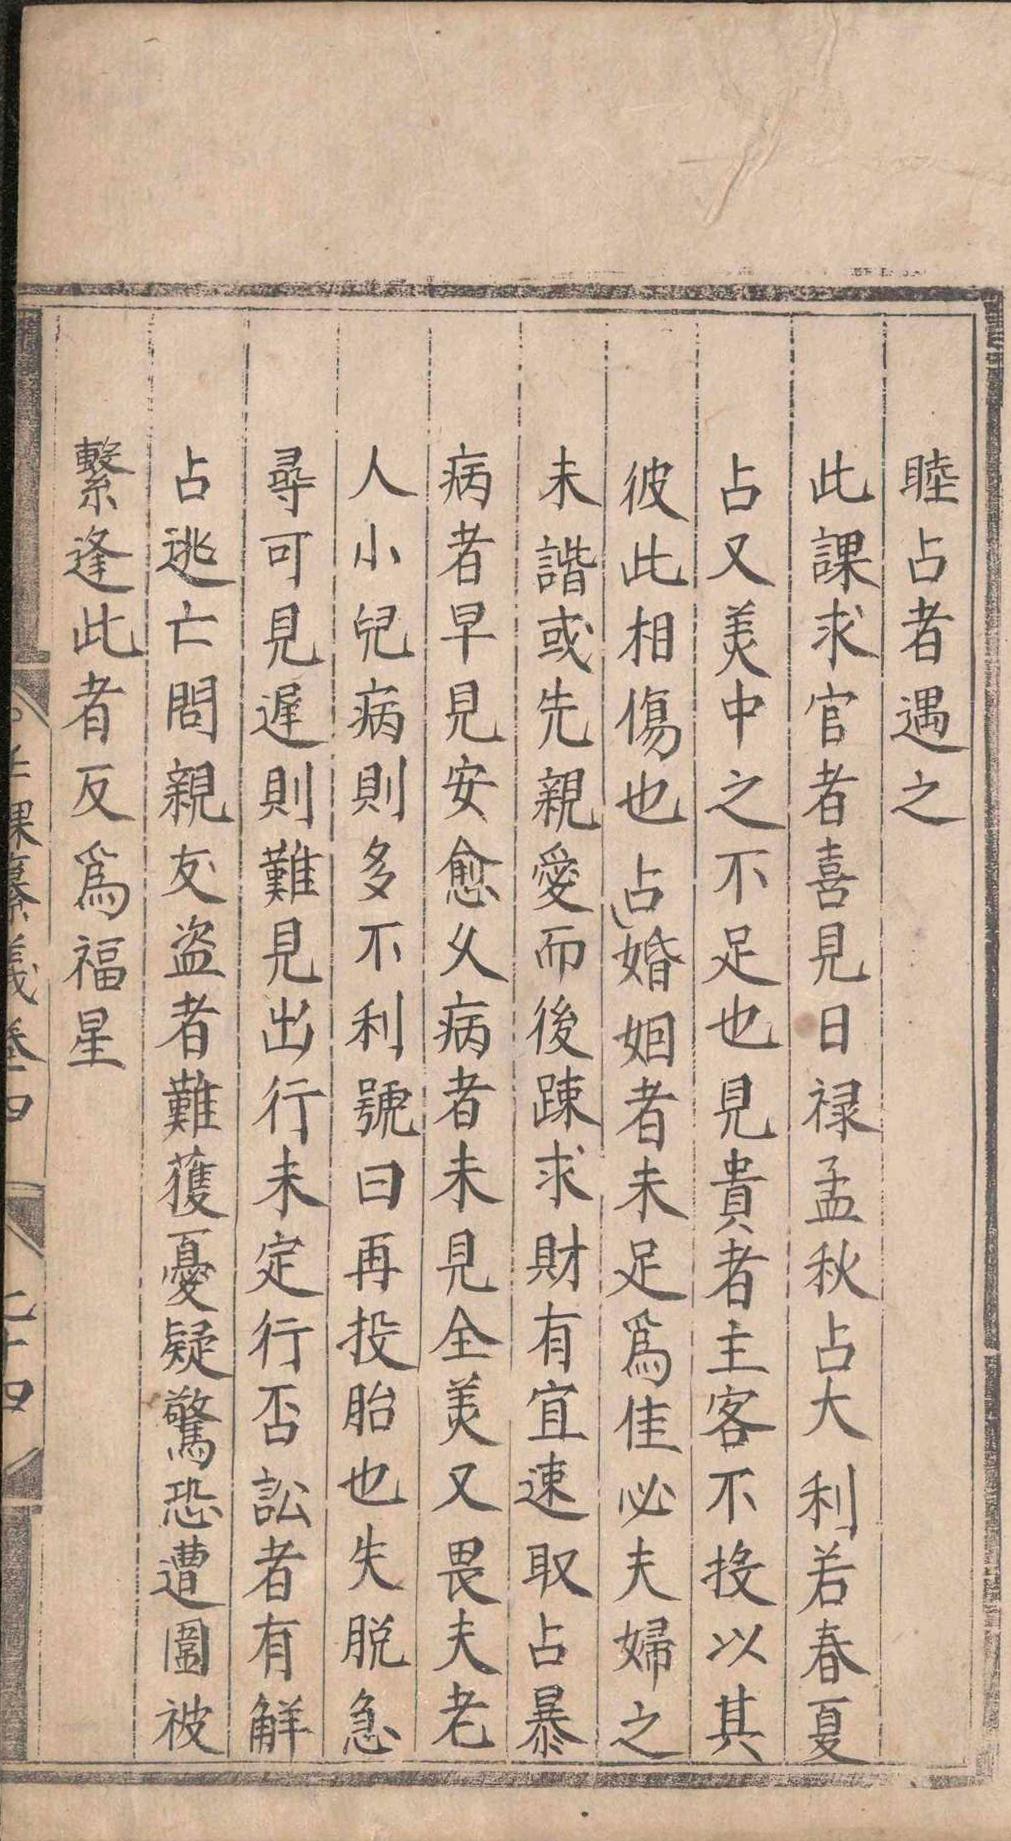 睦占者遇之
此課求官者喜見日禄孟秋占大利若春夏
占又美中之不足也見貴者主客不投以其
彼此相傷也占婚姻者未足爲佳必夫婦之
未諧或先親愛而後踈求財有宜速取占暴
病者早見安愈乆病者未見全美又畏夫老
人小兒病則多不利號曰再投胎也失脱急
尋可見遲則難見出行未定行否訟者有解
占逃亡問親友盗者難獲憂疑驚恐遭圍被
繫逢此者反爲福星
壬課纂義卷四 七十四